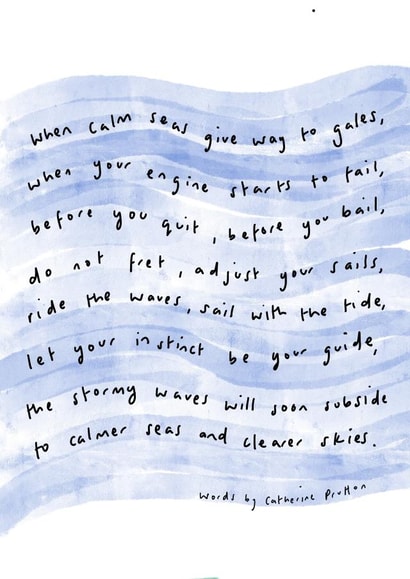 when calm seas give way to gales,
when your engine starts to fail,
before you quit, before you bail,
do not fret, adjust your sails,
ride the waves, sail with the tide,
let your instinct be your guide,
the stormy waves will soon subside
to calmer seas and clearer skies.
words by Catherine Prutton